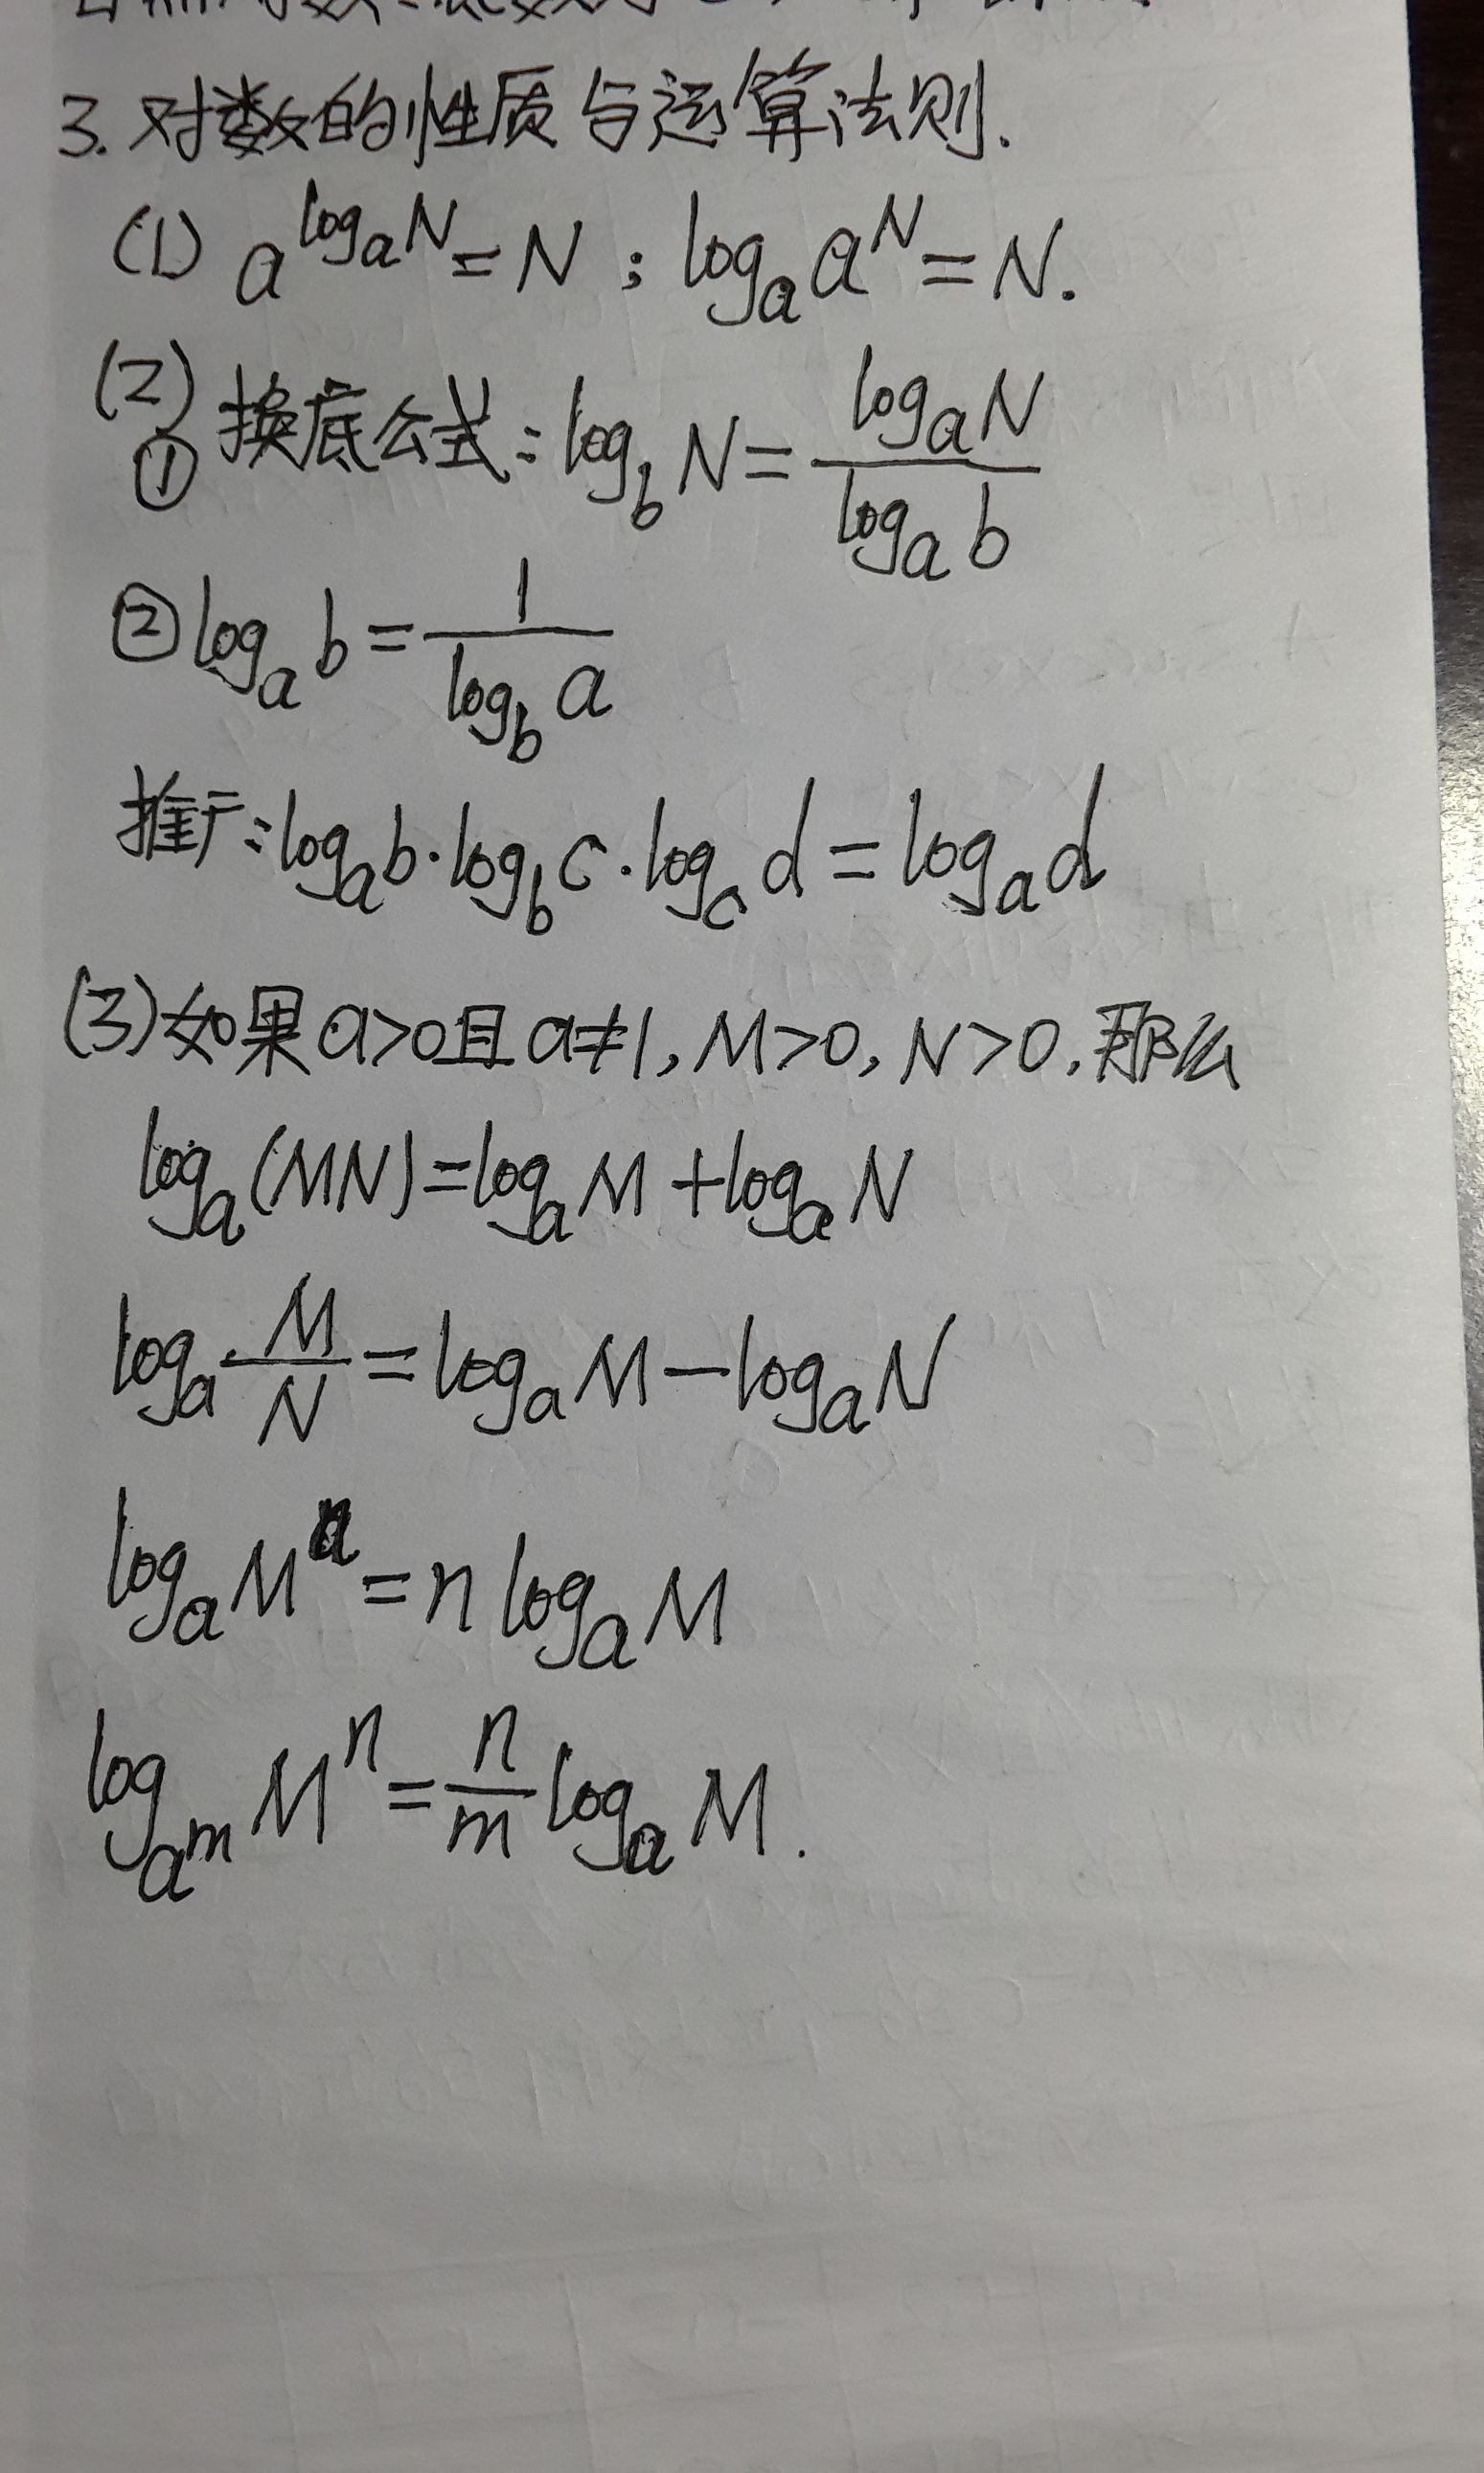 3. 对数的性质与运算法则.
(1) a^{log_a N} = N ; log_a a^N = N.
(2)
① 换底公式: log_b N = \frac{log_a N}{log_a b}
② log_a b = \frac{1}{log_b a}
推广: log_a b · log_b c · log_c d = log_a d
(3) 如果 a>0 且 a≠1, M>0, N>0, 那么
log_a (MN) = log_a M + log_a N
log_a \frac{M}{N} = log_a M - log_a N
log_a M^n = n log_a M
log_{a^m} M^n = \frac{n}{m} log_a M.